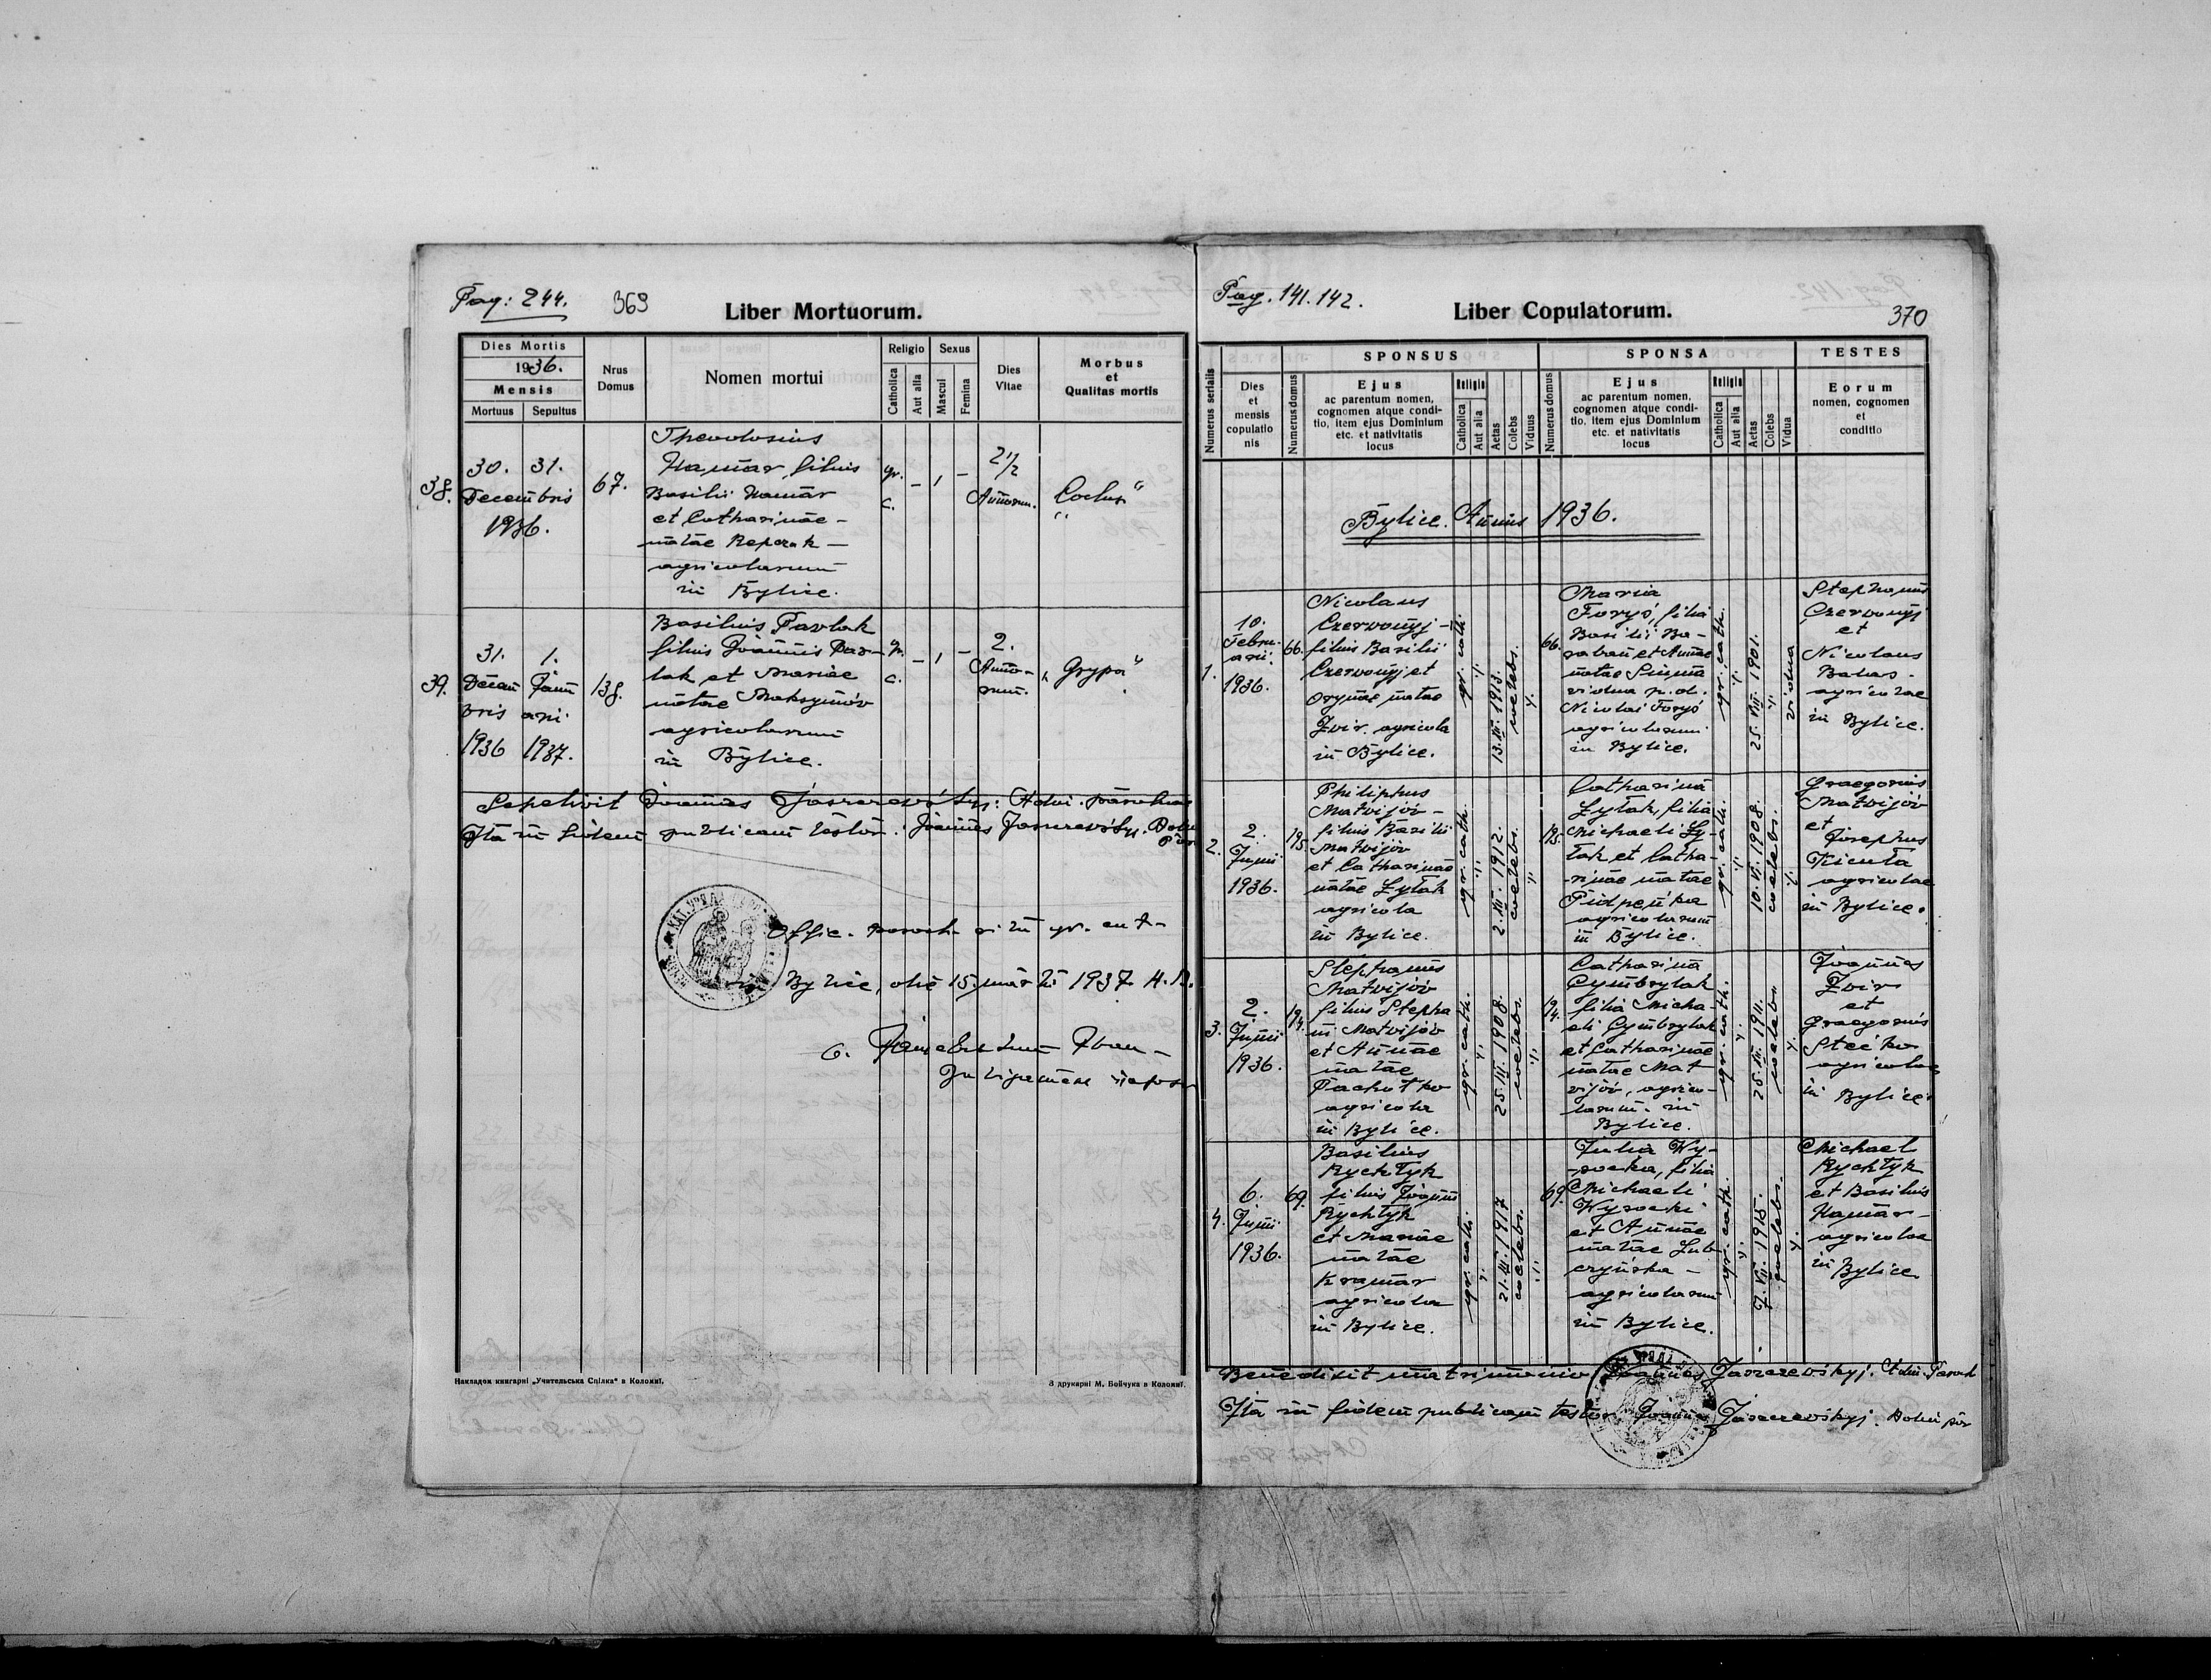 Pag: 244.
363
Liber Mortuorum.
Dies Mortis
1936.
Mensis
Mortuus
Sepultus
Nrus
Domus
Nomen mortui
Religio
Catholica
Aut alia
Sexus
Mascul
Femina
Dies
Vitae
Morbus
et
Qualitas mortis
38.
30. 31.
Decembris
1936.
67.
Theodosius
Hamar, filius
Basilii Hamar
et Catharinae -
natae Repczak -
agricolarum
in Bylice.
gr.
c.
2 1/2
Annorum.
39.
31.
Decem
bris
1936
1.
Janu
arii
1937.
138.
Basilius Pavlak
filius Joannis Pav-
lak et Mariae
natae Maksymóv
agricolarum
in Bylice.
gr.
c.
2.
Anno-
rum.
„Grypa“
Sepelivit Joannes Jaszczevśkyj: Adm. parochus
Ita in fidem publicam testor: Joannes Jaszczevśkyj. Adm
Offic. paroch. ritu gr. cat-
in Bylice, die 15. martii 1937. A.D.
o.
Накладом книгарні „Учительська Спілка“ в Коломиї.
З друкарні М. Бойчука в Коломиї.
Pag. 141. 142.
Liber Copulatorum.
370
Numerus serialis
Dies
et
mensis
copulatio
nis
SPONSUS
Numerus domus
Ejus
ac parentum nomen,
cognomen atque condi-
tio, item ejus Dominium
etc. et nativitatis
locus
Religio
Catholica
Aut alia
Aetas
Colebs
Viduus
SPONSA
Numerus domus
Ejus
ac parentum nomen,
cognomen atque condi-
tio, item ejus Dominium
etc. et nativitatis
locus
Religio
Catholica
Aut alia
Aetas
Colebs
Vidua
TESTES
Eorum
nomen, cognomen
et
conditio
Bylice. Annus 1936.
1.
10.
Febru-
arii.
1936.
66.
Nicolaus
Czervonyj -
filius Basilii
Czervonyj et
Orynae natae
Zvir. agricola
in Bylice.
gr. cath.
13. III. 1913.
coelebs.
66.
Maria
Foryś, filia
Basilii Ba-
raban et Annae
natae
vidua p. d.
Nicolai Foryś
agricolarum
in Bylice.
gr. cath.
25. VIII. 1901.
vidua
Stephanus
Czervonyj
et
Nicolaus
Balas.
agricolae
in Bylice.
2.
2.
Junii
1936.
195.
Philiphus
Matvijóv -
filius Basilii
Matvijóv
et Catharinae
natae Zytak
agricola
in Bylice.
gr. cath.
2. III. 1912.
coelebs.
195.
Catharina
Zytak, filia
Michaeli Zy-
tak et Catha-
rinae natae
agricolarum
in Bylice.
gr. cath.
10. VI. 1908.
coelebs.
Graegorius
Matvijóv
et
Josephus
Kicuła
agricolae
in Bylice.
3.
2.
Junii
1936.
194.
Stephanus
Matvijóv
filius Stepha
ni Matvijóv
et Annae
natae
agricola
in Bylice.
gr. cath.
25. III. 1908.
coelebs.
194.
Catharina
Cymbrylak
filia Micha-
eli Cymbrylak
et Catharinae
natae Mat
vijóv, agrico-
larum. in
Bylice.
gr. cath.
coelebs.
Joannes
Zvir
et
Graegorius
Stećko
agricolae
in Bylice.
4.
6.
Junii
1936.
69.
Basilius
Rychtyk
filius Joannis
Rychtyk
et Mariae
natae
Kramar
agricola
in Bylice.
gr. cath.
21. III. 1917
coelebs.
69.
Julia Wy-
socka, filia
Michaeli
Wysocki
et Annae
natae Lub-
czyńska -
agricolarum
in Bylice.
gr. cath.
7. VII. 1915.
coelebs.
Michael
Rychtyk
et Basilius
Hamar -
agricolae
in Bylice.
Benedixit matrimonio Joannes Jaszczevśkyj. Adm. Paroch
Ita in fidem publicam testor. Joannes Jaszczevśkyj. Adm par